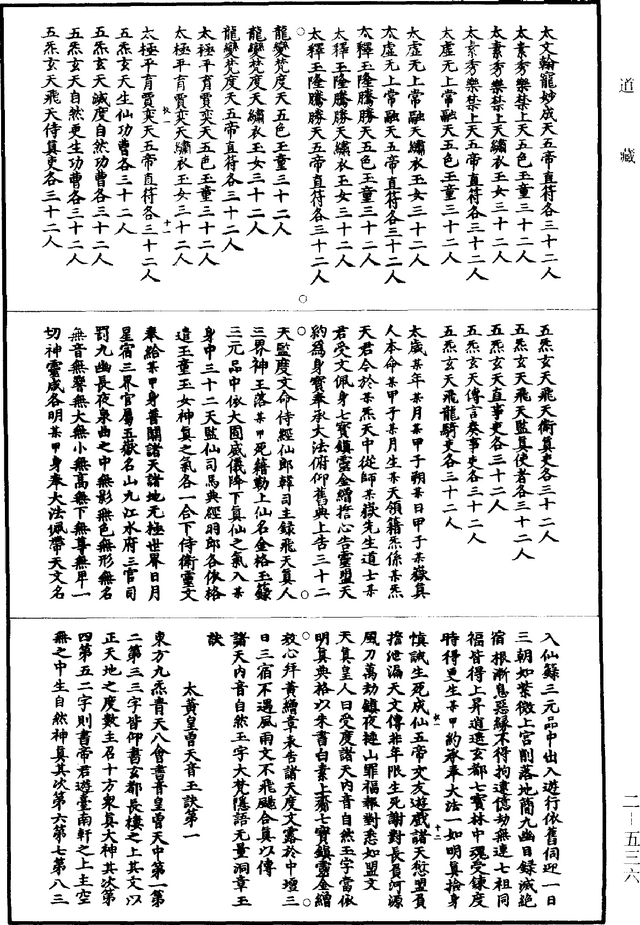 道藏
太文翰寵妙成天五帝直符各三十二人
太素秀樂禁上天五色玉童三十二人
太素秀樂禁上天繡衣玉女三十二人
太素秀樂禁上天五帝直符各三十二人
太虛无上常融天五色玉童三十二人
太虛无上常融天繡衣玉女三十二人
太虛无上常融天五帝直符各三十二人
太釋玉隆騰勝天五色玉童三十二人
太釋玉隆騰勝天繡衣玉女三十二人
太釋玉隆騰勝天五帝直符各三十二人
龍變梵度天五色玉童三十二人
龍變梵度天繡衣玉女三十二人
龍變梵度天五帝直符各三十二人
太極平育賈奕天五色玉童三十二人
太極平育賈奕天繡衣玉女三十二人
太極平育賈奕天五帝直符各三十二人
五炁玄天生仙功曹各三十二人
五炁玄天滅度自然功曹各三十二人
五炁玄天自然更生功曹各三十二人
五炁玄天飛天侍真吏各三十二人
五炁玄天飛天衛真吏各三十二人
五炁玄天飛天監真使者各三十二人
五炁玄天直事吏各三十二人
五炁玄天傳言奏事吏各三十二人
五炁玄天飛龍騎吏各三十二人
太歲某年某月某甲子朔某日甲子于某嶽真
人本命某甲子某月生某天領籍炁係某炁
天君今於某炁天中從師某嶽先生道士某
君受文佩身七寶鎮靈金繒誓心告靈盟天
約為身寶奉承大法俯仰舊典上告三十二
天監度文命侍經仙郎韓司主錄飛天真人
三界神王落某甲死籍勒上仙名金格玉籙
三元品中依大固威儀降下真仙之氣入某
身中三十二天監仙司馬典經羽郎各依格
遣玉童玉女神真之氣各一合下侍衛靈文
奉給某甲身普關諸天諸地无極世界日月
星宿三界官屬五嶽名山九江水府三官司
罰九幽長夜泉曲之中無影無色無形無名
無音無響無大無小無高無下無尊無卑一
切神靈咸各明某甲身奉大法佩帶天文名
入仙籙三元品中出入遊行依舊伺迎一日
三朝如紫微上宮削落地簡九幽目錄滅絕
宿根漸息惡緣不得拘遣億劫無連七祖同
福皆得上昇逍遙玄都七寶林中魂受鍊度
時得更生某甲約承奉大法一如明真捨身
慎誡生死成仙五帝交友遊戲諸天愆盟負
誓泄漏天文傳非年限生死謝對長負河源
風刀萬劫鎮夜撻山罪福報對悉如盟文
天真皇人曰受度諸天內音自然玉字當依
明真典格以朱書白素上齎七寶鎮靈金繒
效心拜黃繒章表告諸天度文露於中壇三
日三宿不遇風雨文不飛颺合真以傳
諸天內音自然玉字大梵隱語无量洞章玉
訣
太黃皇曾天音玉訣第一
東方九炁青天八會書音皇曾天中第一第
二第三三字皆仰書玄都長樓之上其文以
正天地之度數主召十方東真大神其次第
四第五二字則書帝君遊臺南軒之上主空
無之中生自然神真其次第六第七第八三
二-五三六